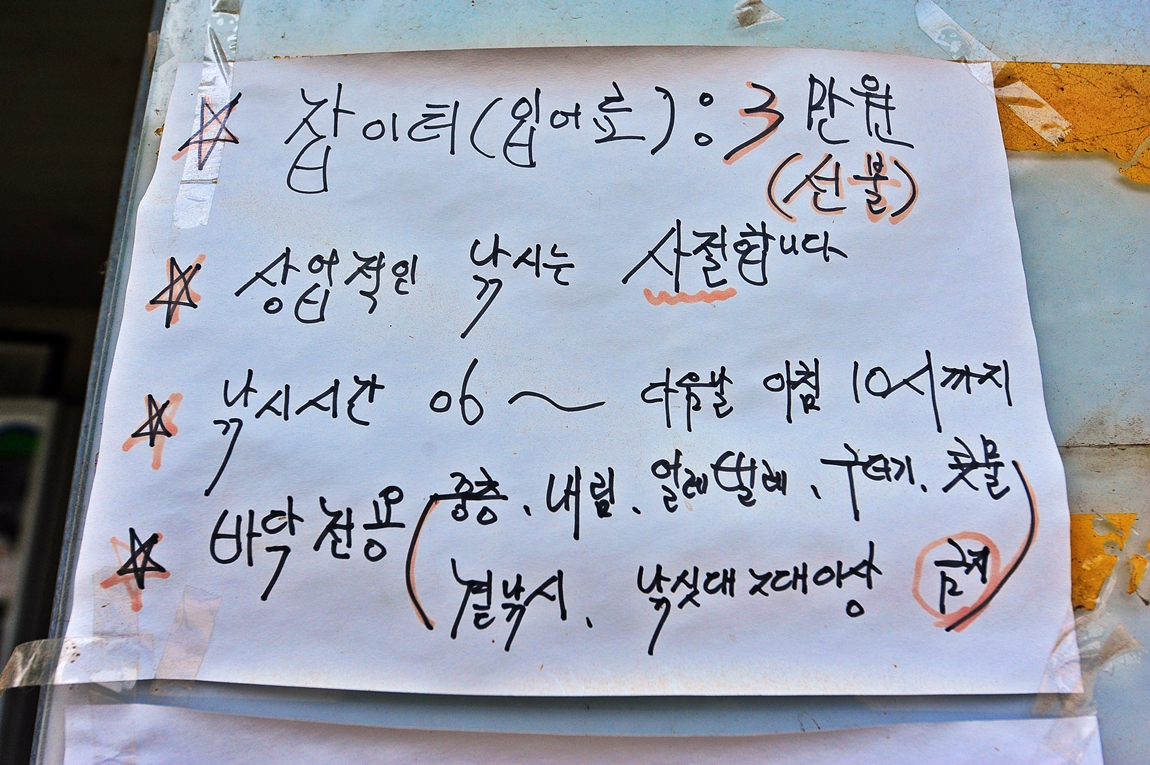 ☆ 잡이터(입어료) : 3만원
(선불)
☆ 상업적인 낚시는 사절합니다
☆ 낚시시간 06~ 다음날 아침 10시까지
☆ 바닥전용(중층, 내림, 얼레벌레, 구더기, 콧물
겉낚시, 낚싯대 2대이상 금지)